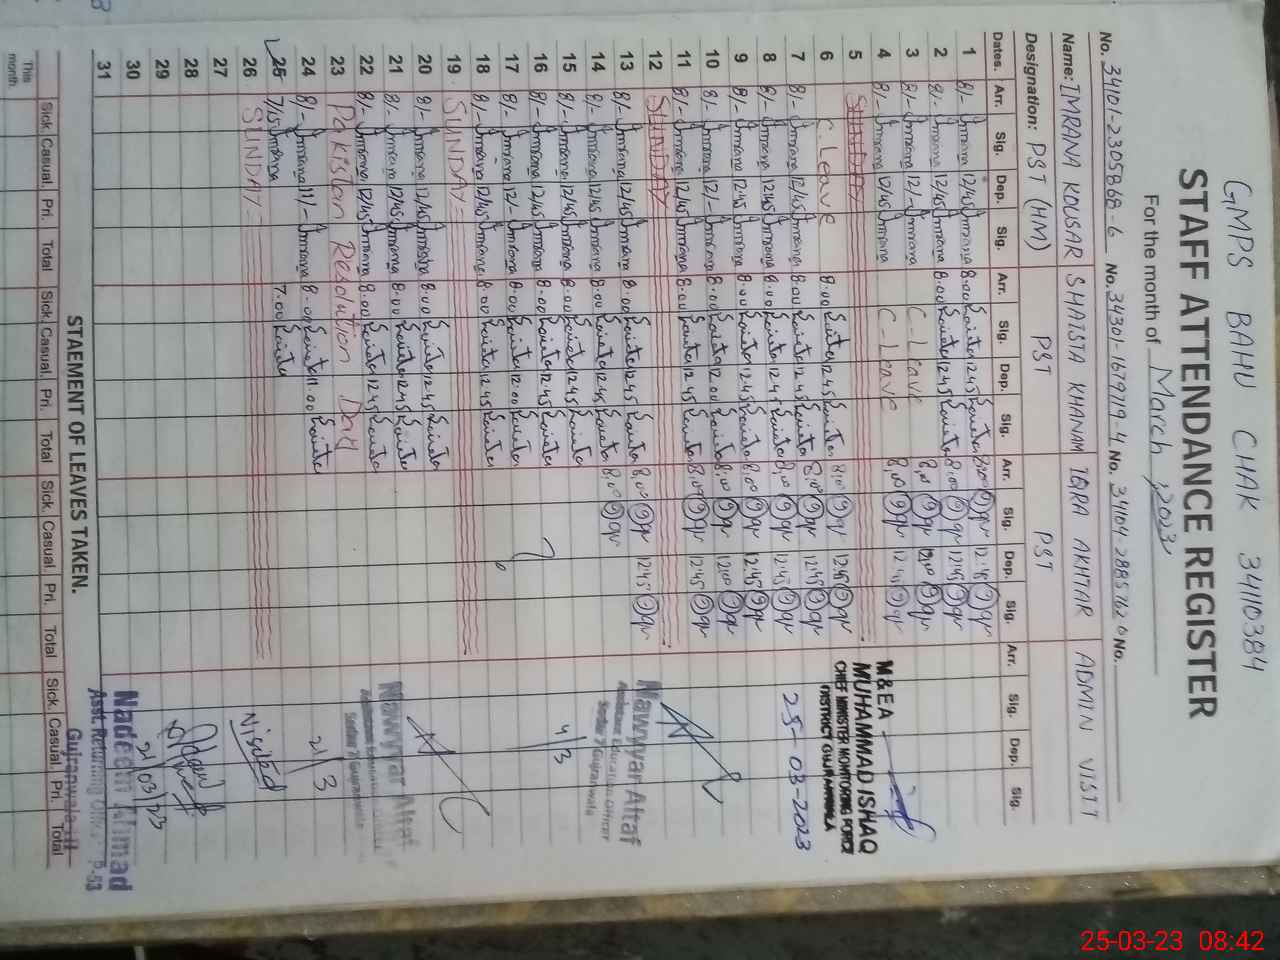 GMPS BAHU CHAK 34110384
STAFF ATTENDANCE REGISTER
For the month of March, 2023
No. 34101-2305868-6 No. 34301-1679719-4 No. 34104-2885762 0 No.
Name: IMRANA KOUSAR SHAISTA KHANAM IQRA AKHTAR ADMIN VISIT
Designation: PST (HM) PST PST
Dates. Arr. Sig. Dep. Sig. Arr. Sig. Dep. Sig. Arr. Sig. Dep. Sig. Arr. Sig. Dep. Sig.
1 8/- Imrana 12/45 Imrana 8.00 Shaista 12.45 Shaista 8:00 Iqr 12:45 Iqr
2 8/- Imrana 12/45 Imrana 8.00 Shaista 12.45 Shaista 8:00 Iqr 12:45 Iqr
3 8/- Imrana 12/- Imrana C-Leave 8:00 Iqr 12:00 Iqr
4 8/- Imrana 12/45 Imrana C-Leave 8:00 Iqr 12:45 Iqr
5 SUNDAY
6 C. Leave 8.00 Shaista 12.45 Shaista 8:00 Iqr 12:45 Iqr
7 8/- Imrana 12/45 Imrana 8.00 Shaista 12.45 Shaista 8:00 Iqr 12:45 Iqr
8 8/- Imrana 12/45 Imrana 8.00 Shaista 12.45 Shaista 8:00 Iqr 12:45 Iqr
9 8/- Imrana 12.45 Imrana 8.00 Shaista 12.45 Shaista 8:00 Iqr 12:45 Iqr
10 8/- Imrana 12/- Imrana 8.00 Shaista 12.00 Shaista 8:00 Iqr 12:00 Iqr
11 8/- Imrana 12/45 Imrana 8.00 Shaista 12.45 Shaista 8:00 Iqr 12:45 Iqr
12 SUNDAY
13 8/- Imrana 12/45 Imrana 8.00 Shaista 12.45 Shaista 8:00 Iqr 12:45 Iqr
14 8/- Imrana 12/45 Imrana 8.00 Shaista 12.45 Shaista 8:00 Iqr
15 8/- Imrana 12/45 Imrana 8.00 Shaista 12.45 Shaista
16 8/- Imrana 12/45 Imrana 8.00 Shaista 12.45 Shaista
17 8/- Imrana 12/- Imrana 8.00 Shaista 12.00 Shaista
18 8/- Imrana 12/45 Imrana 8.00 Shaista 12.45 Shaista
19 SUNDAY
20 8/- Imrana 12/45 Imrana 8.00 Shaista 12.45 Shaista
21 8/- Imrana 12/45 Imrana 8.00 Shaista 12.45 Shaista
22 8/- Imrana 12/45 Imrana 8.00 Shaista 12.45 Shaista
23 Pakistan Resolution Day
24 8/- Imrana 11/- Imrana 8.00 Shaista 11.00 Shaista
25 7/15 Imrana 7.00 Shaista
26 SUNDAY
27
28
29
30
31
M&EA
MUHAMMAD ISHAQ
CHIEF MINISTER MONITORING FORCE
DISTRICT GUJRANWALA
25-03-2023
Nawyyar Altaf
Assistance Education Officer
Sector 7 Gujranwala
4/3
Nawyyar Altaf
Sector 7 Gujranwala
21/3
Visited
21/03/23
Nadeem Ahmad
Asst. Returning Officer P-53
Gujranwala-II
STAEMENT OF LEAVES TAKEN.
Sick. Casual. Pri. Total Sick. Casual. Pri. Total Sick. Casual. Pri. Total Sick. Casual. Pri. Total
This month.
25-03-23 08:42